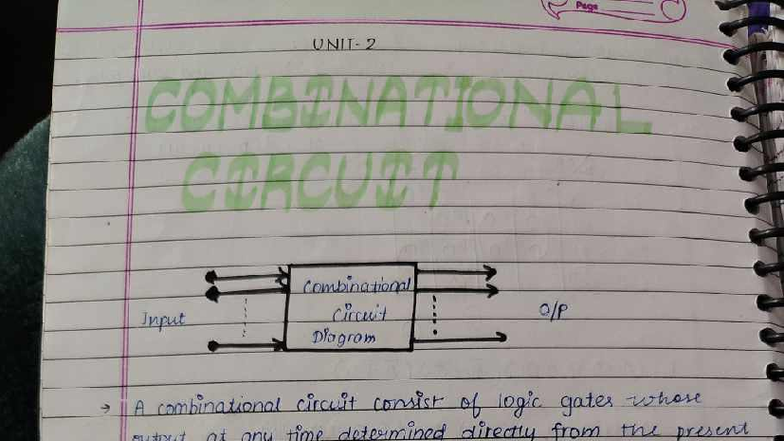 Page
UNIT-2
COMBINATIONAL
CIRCUIT
Input
Combinational
Circuit
Diagram
O/P
→ A combinational circuit consist of logic gates whose
output at any time determined directly from the present